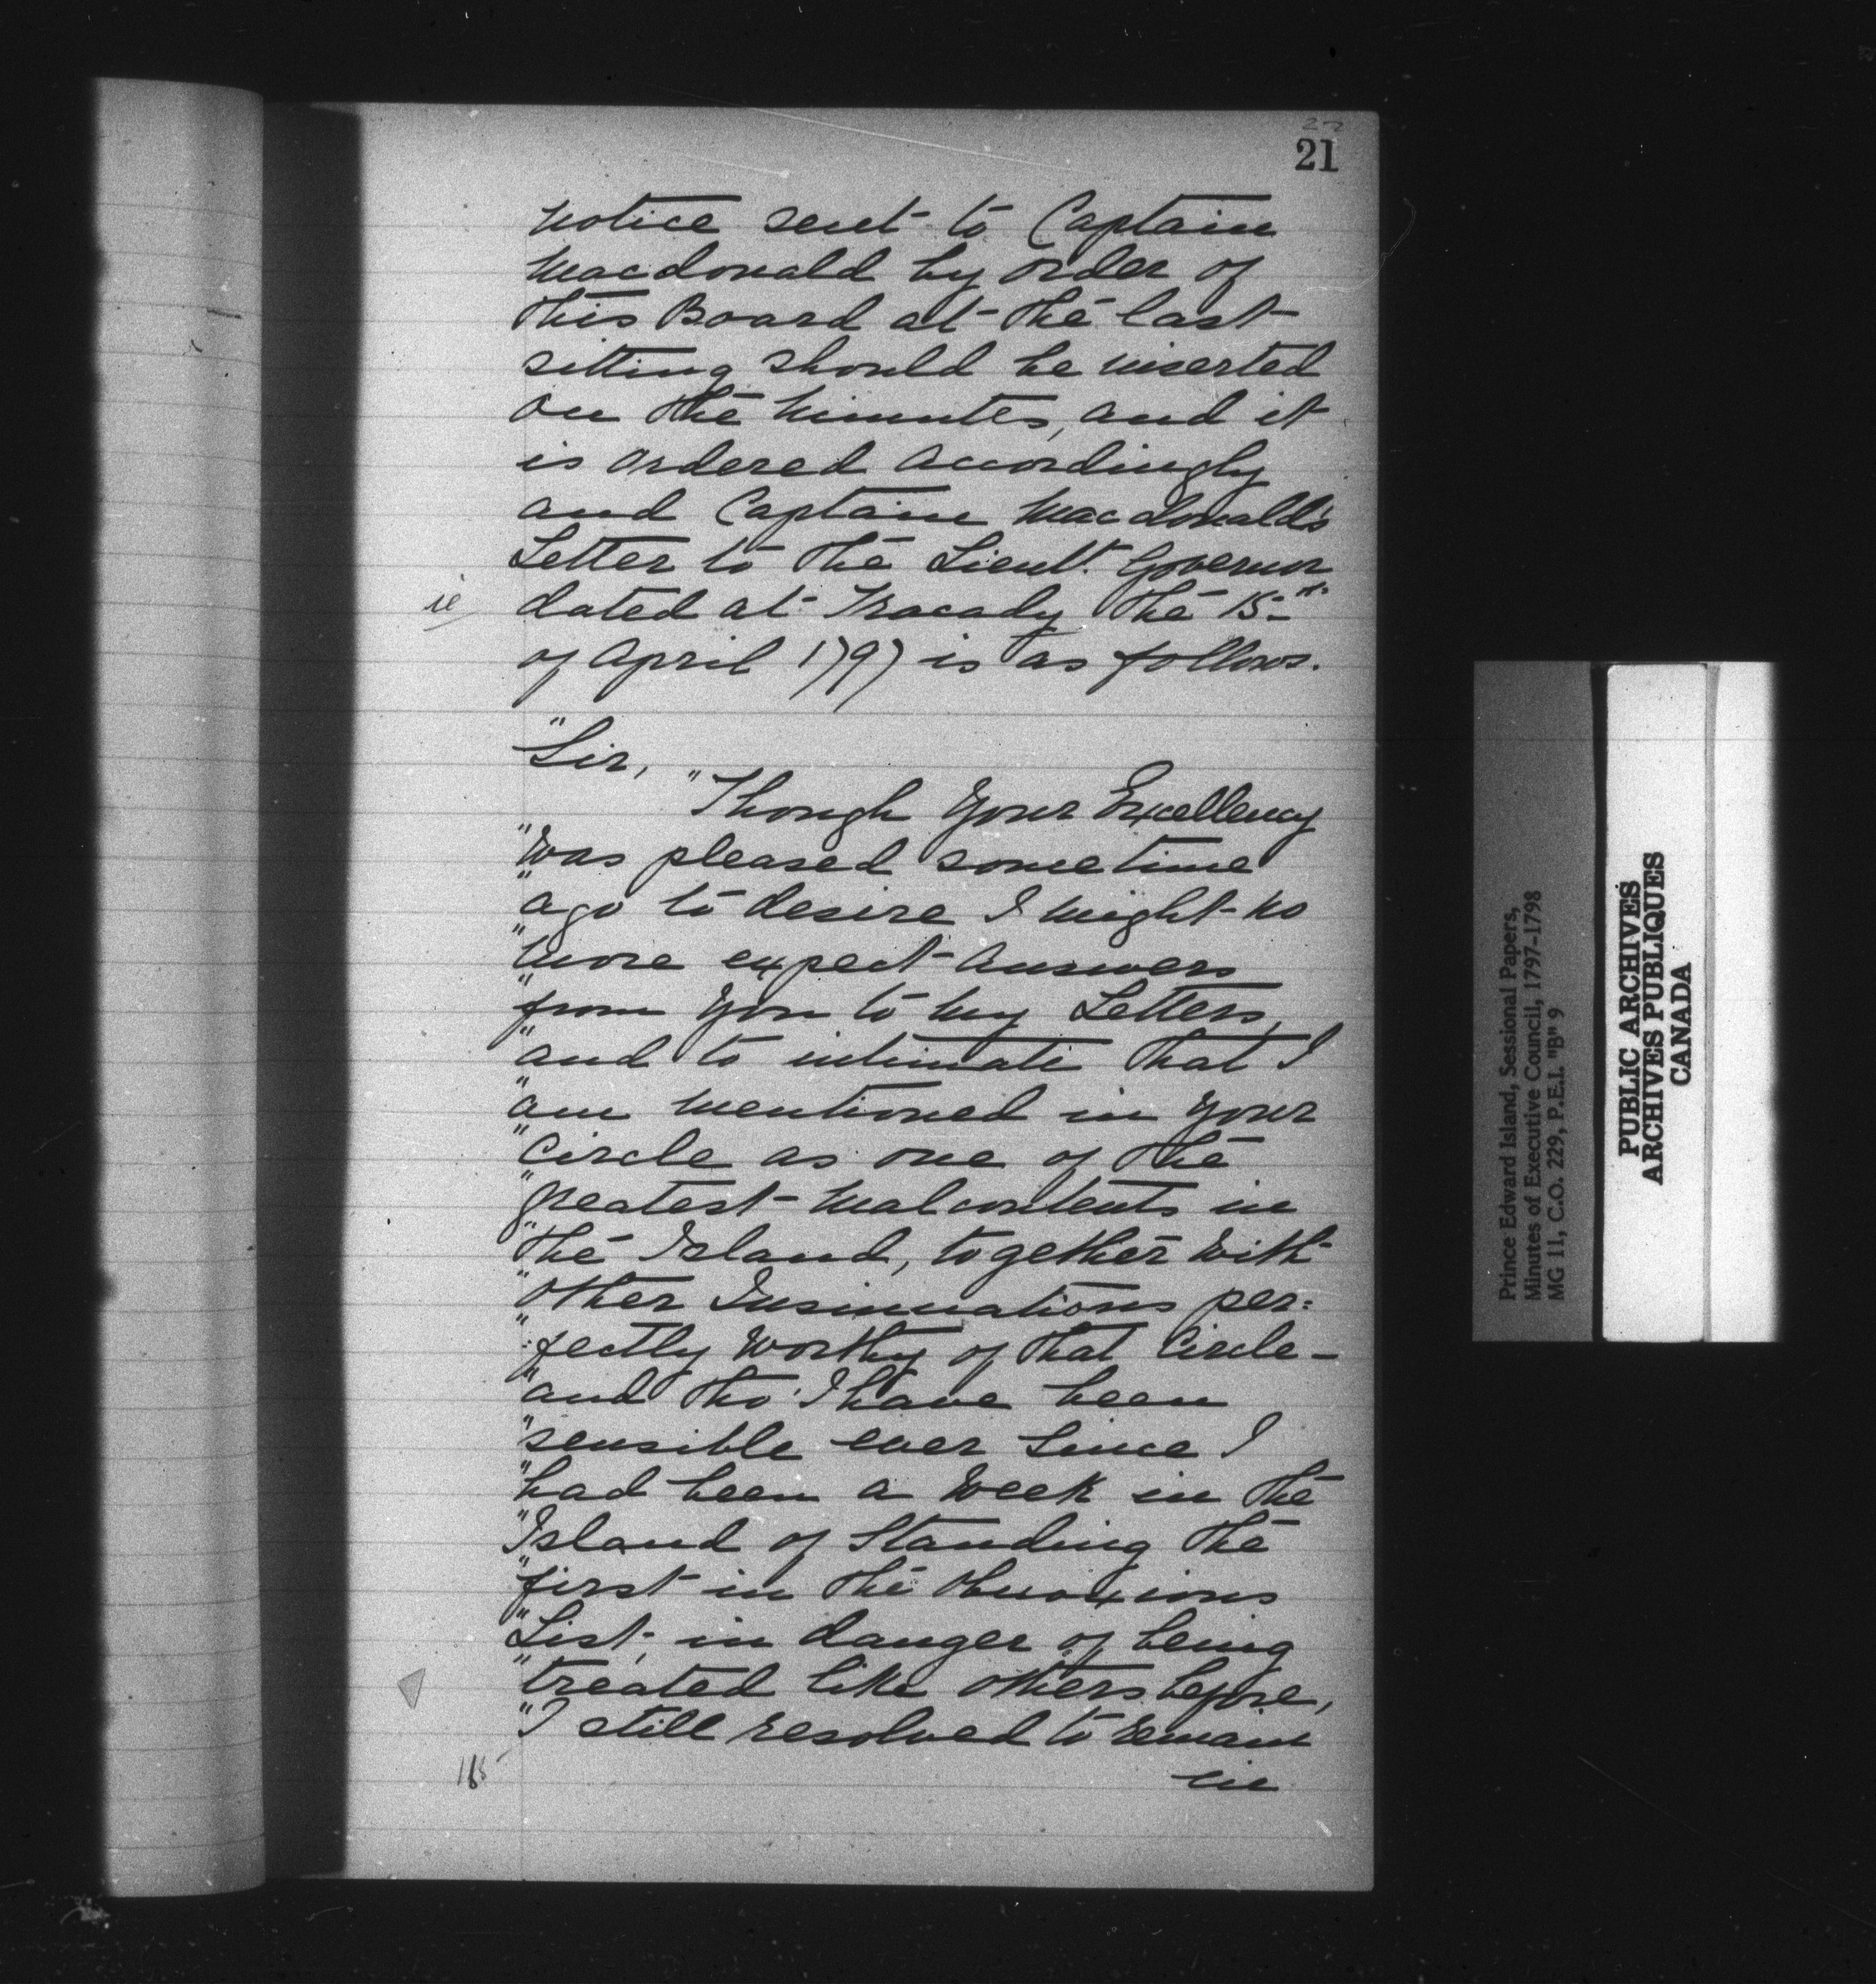 21
notice sent to Captain
Macdonald by order of
This Board at the last
sitting should be inserted
on the Minutes, and it
is ordered accordingly
and Captain Macdonald's
Letter to the Lieut. Governor
ie dated at Tracady the 15th
of April 1797 is as follows.
"Sir,
"Though Your Excellency
"was pleased sometime
"ago to desire I might no
"more expect answers
"from You to my Letters,
"and to intimate that I
"am mentioned in your
"Circle as one of the
"greatest malcontents in
"the Island, together with
"other Insinuations per:
":fectly worthy of that Circle—
"and tho' I have been
"sensible ever since I
"had been a Week in the
"Island of Standing the
"first in the obnoxious
"List, in danger of being
"treated like others before,
"I still resolved to remain
in
Prince Edward Island, Sessional Papers,
Minutes of Executive Council, 1797-1798
MG 11, C.O. 229, P.E.I. "B" 9
PUBLIC ARCHIVES
ARCHIVES PUBLIQUES
CANADA